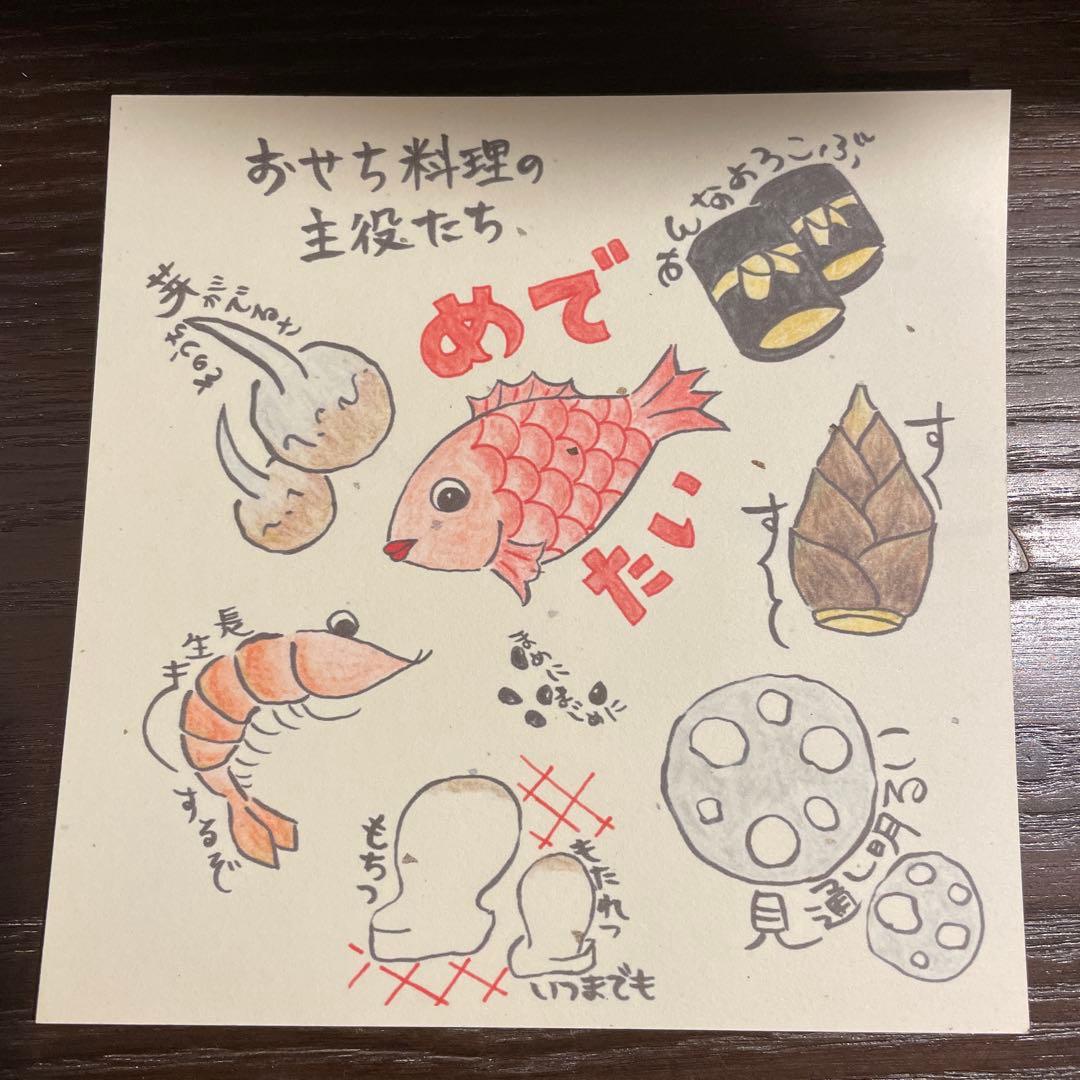 おせち料理の
主役たち
めで
たい
みんなよろこぶ
芽がでるさ
すー
すーっと
長生き
するぞ
まめに
まごめに
見通し明るい
もちつ
もたれつ
いつまでも